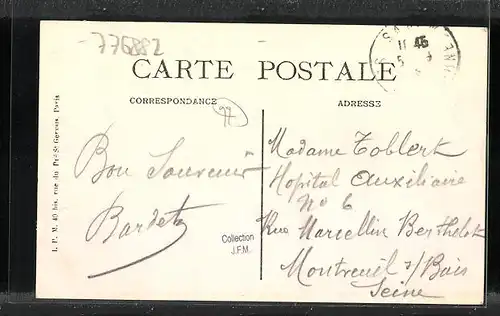 776882
11 45
CARTE POSTALE
CORRESPONDANCE
ADRESSE
I. P. M. 40 bis, rue du Pré-St Gervais, Paris
Bon Souvenir
Bardetz
Collection
J.F.M.
Madame Toblert
Hopital Auxiliaire
No 6
Rue Marcellin Berthelot
Montreuil s/Bois
Seine